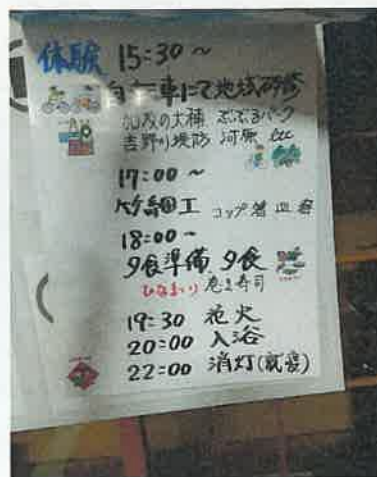 体験 15:30～
自転車にて地域研修
ぶぶるパーク
吉野川堤防 河原 etc
17:00～
竹細工 コップ 箸 皿
18:00～
夕食準備 夕食
ひなまつり 巻き寿司
19:30 花火
20:00 入浴
22:00 消灯(就寝)